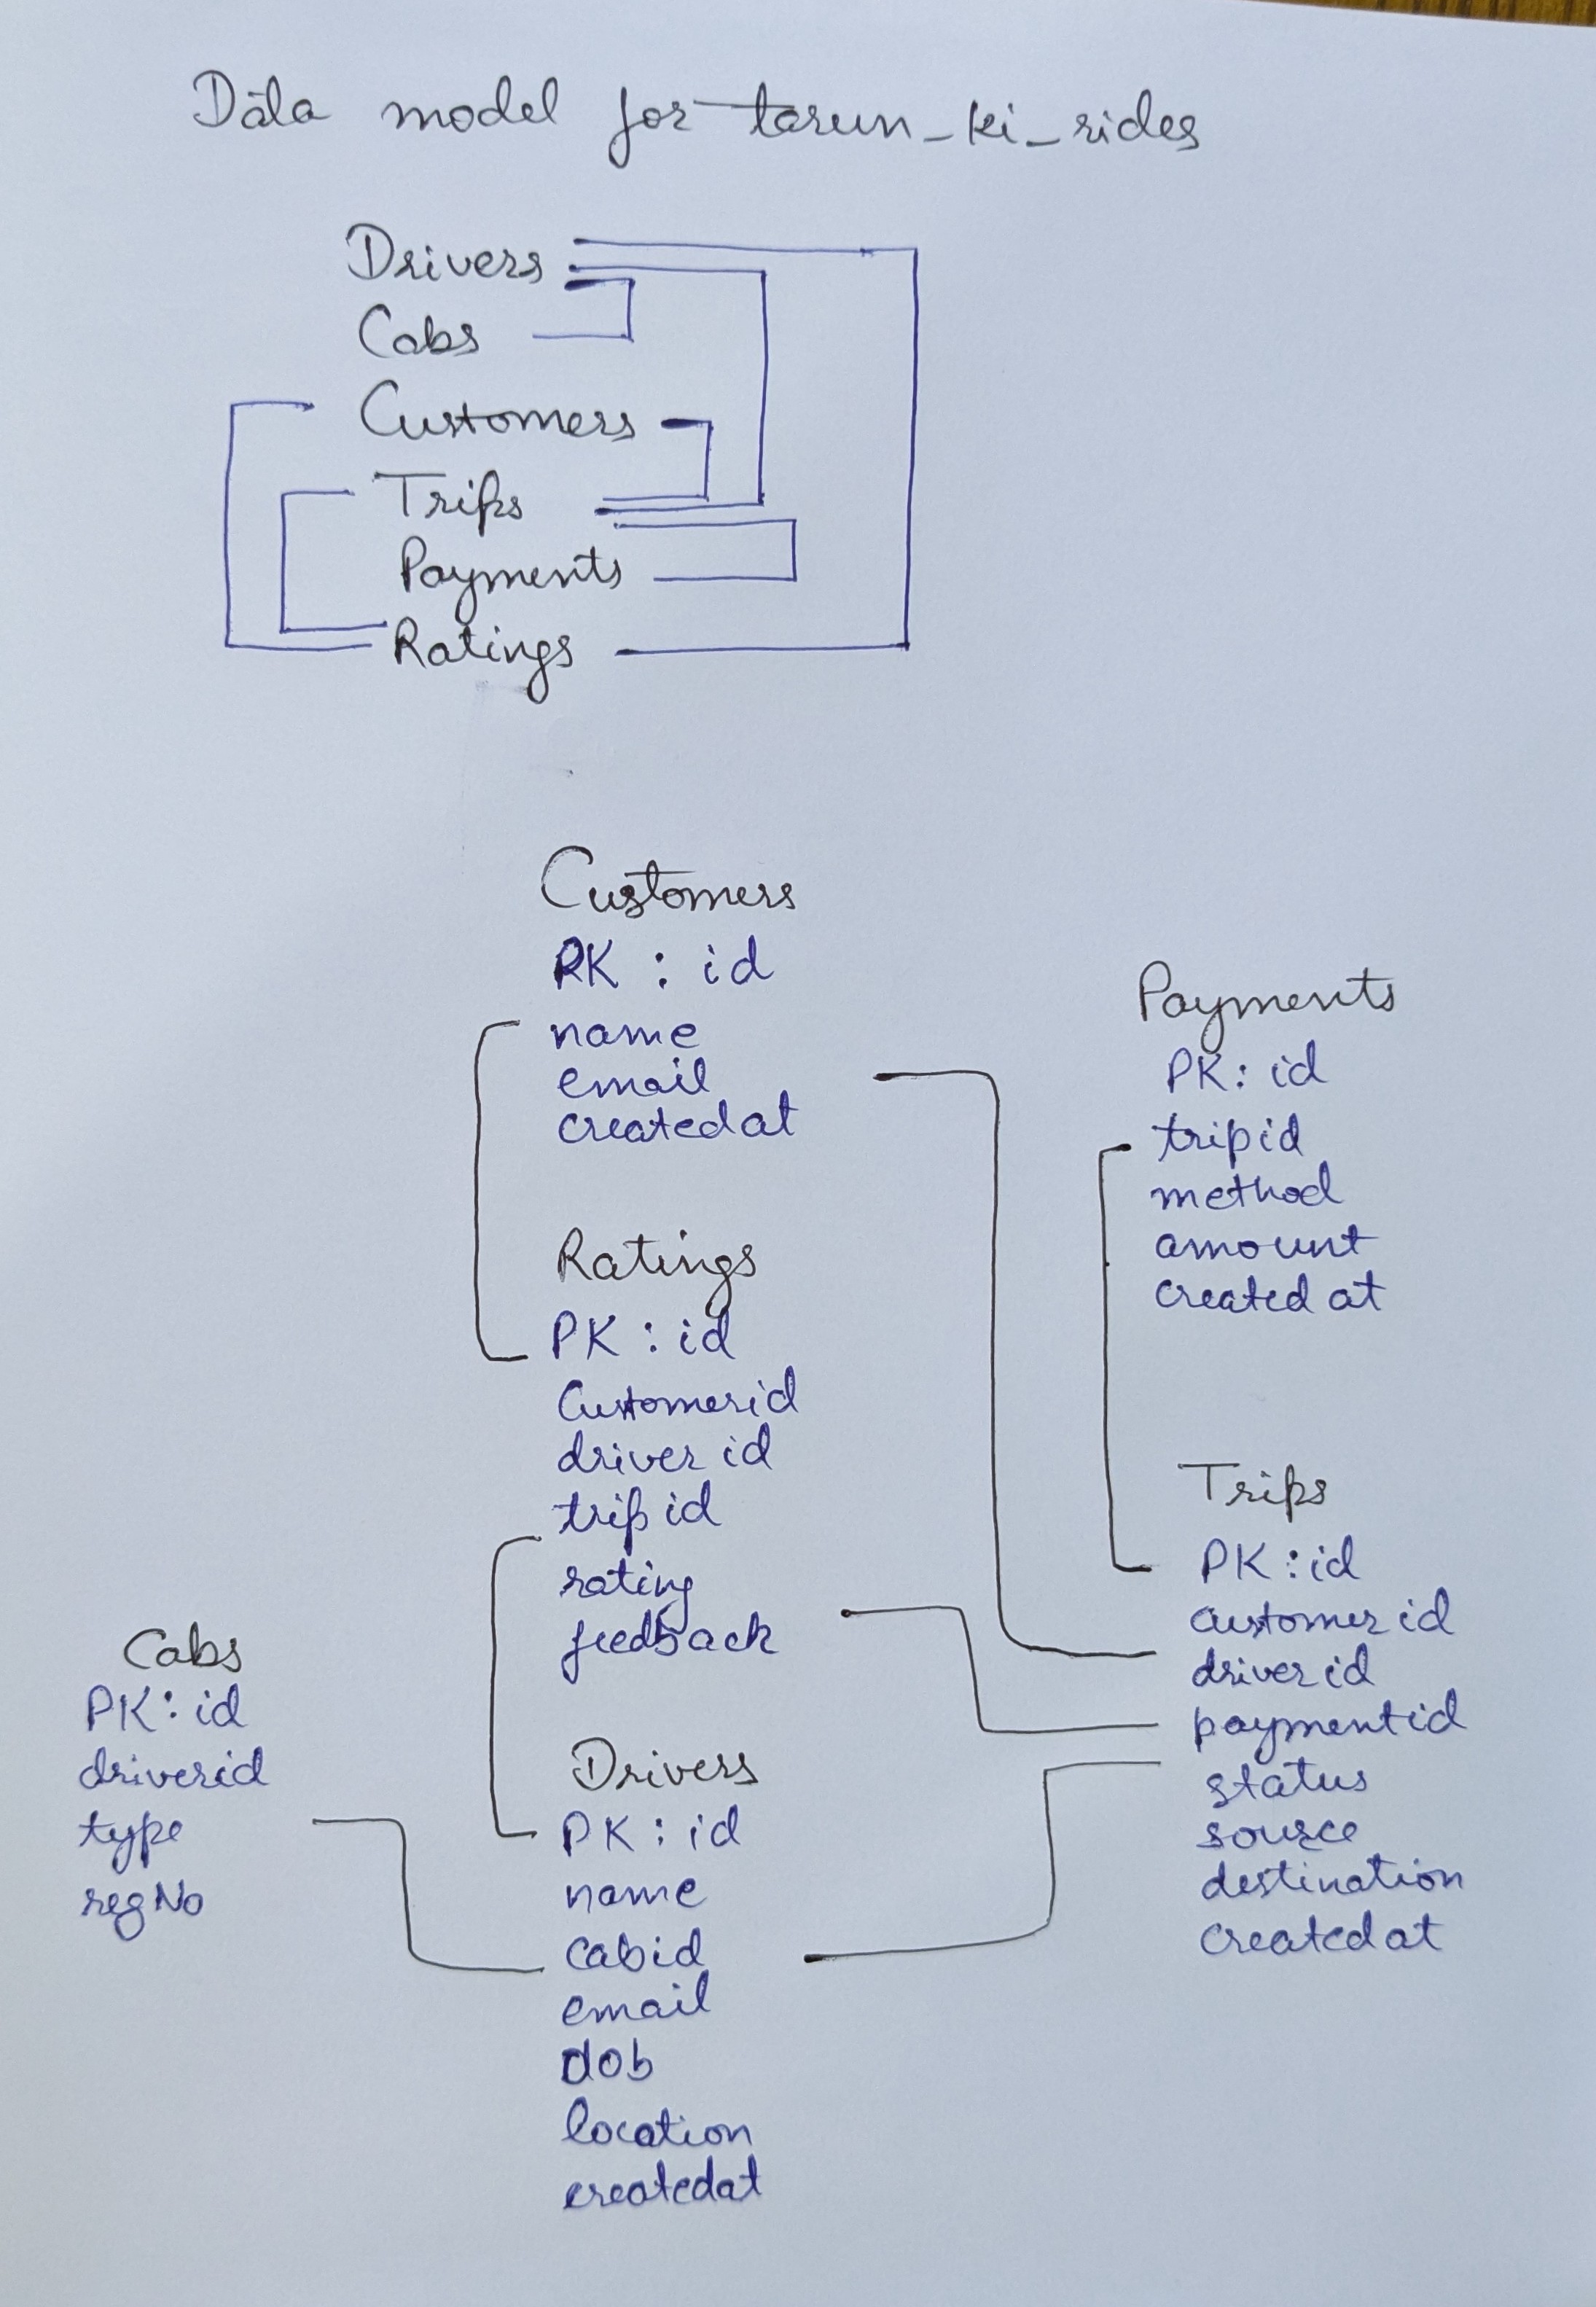 Data model for tarun_ki_rides
Drivers
Cabs
Customers
Trips
Payments
Ratings
Customers
PK : id
name
email
createdat
Ratings
PK : id
Customerid
driver id
trip id
rating
feedback
Cabs
PK : id
driverid
type
regNo
Drivers
PK : id
name
cabid
email
dob
location
createdat
Payments
PK : id
tripid
method
amount
created at
Trips
PK : id
customer id
driver id
paymentid
status
source
destination
createdat